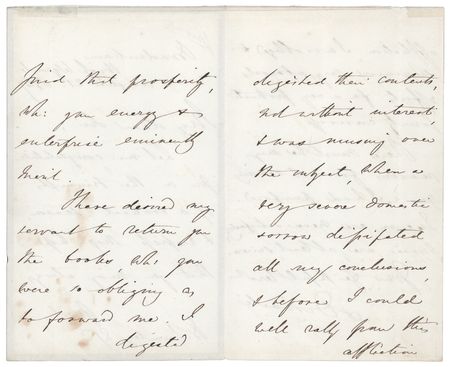 find that prosperity,
wh: your energy &
enterprise eminently
merit.
I have desired my
servant to return you
the books, wh: you
were so obliging as
to forward me. I
digested
digested their contents,
not without interest,
& was musing over
the subject, when a
very severe domestic
sorrow dissipated
all my conclusions,
& before I could
well rally from this
affliction